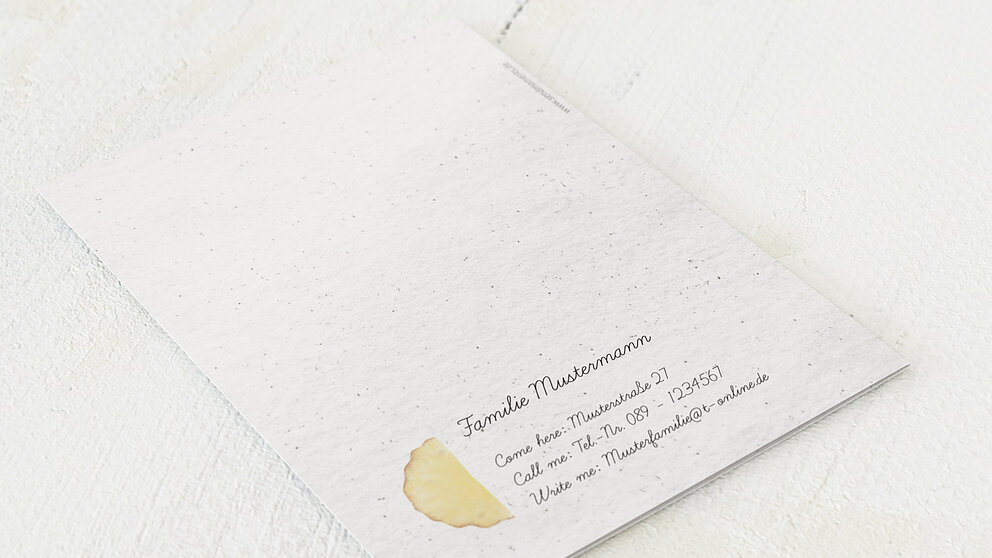 Familie Mustermann
Come here: Musterstraße 27
Call me: Tel.-Nr. 089 - 1234567
Write me: Musterfamilie@t-online.de